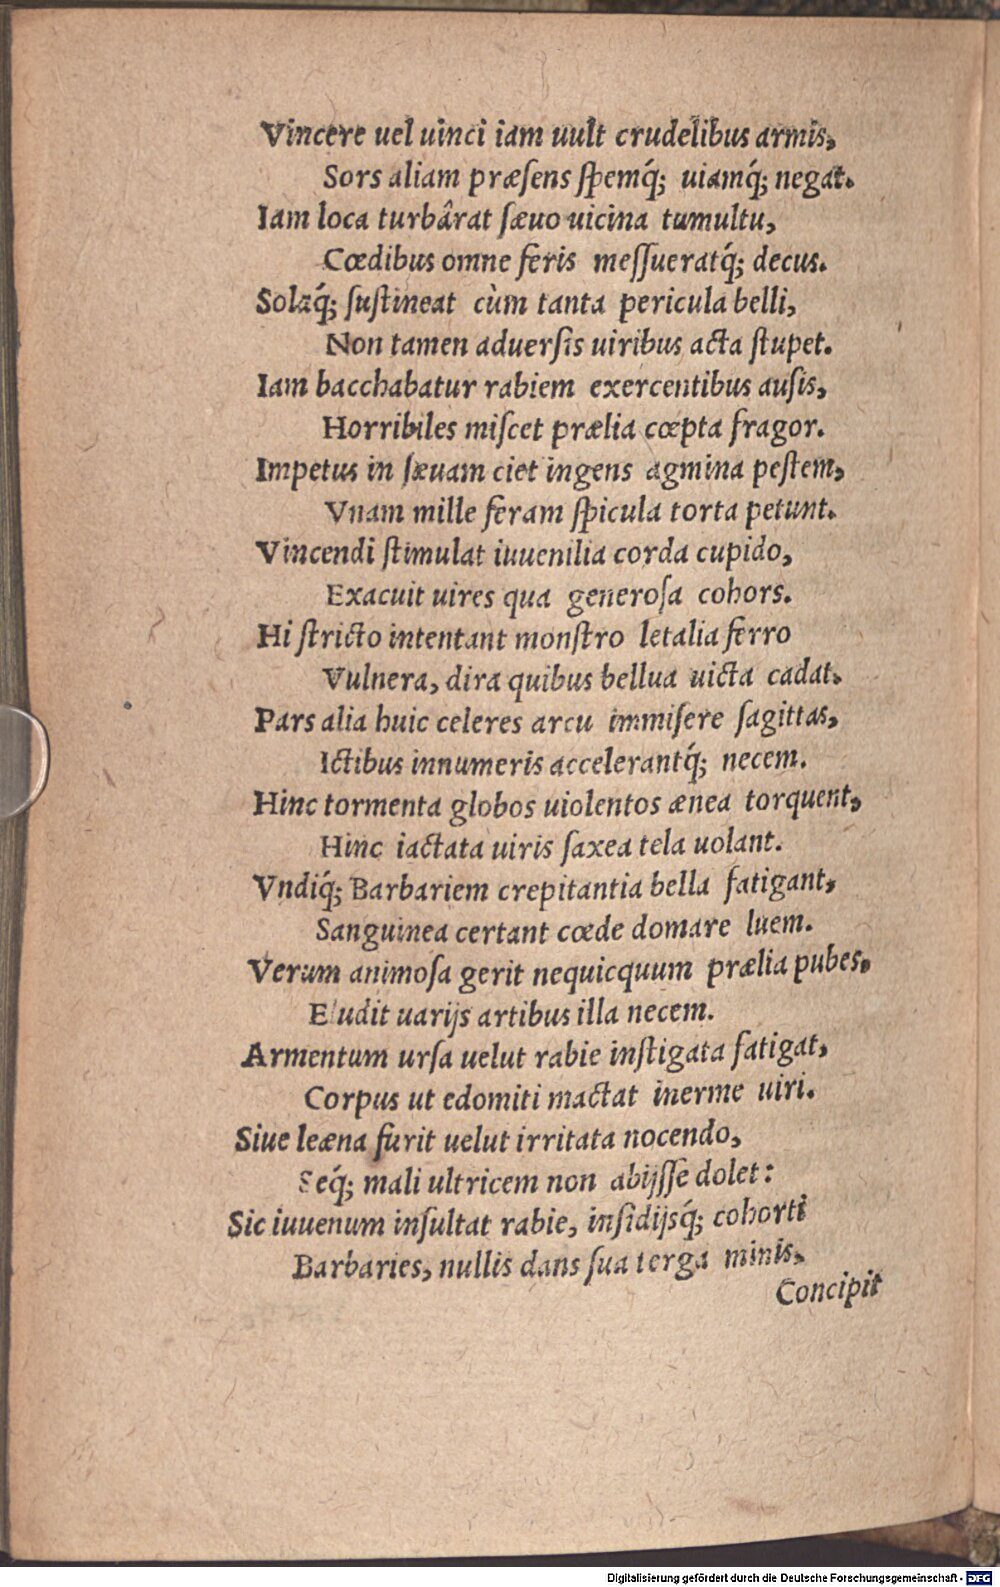 Vincere uel uinci iam uult crudelibus armis,
Sors aliam præſens ſpemq́; uiamq́; negat.
Iam loca turbârat ſæuo uicina tumultu,
Cœdibus omne feris meſſueratq́; decus.
Solaq́; ſuſtineat cùm tanta pericula belli,
Non tamen aduerſis uiribus acta ſtupet.
Iam bacchabatur rabiem exercentibus auſis,
Horribiles miſcet prælia cœpta fragor.
Impetus in ſæuam ciet ingens agmina peſtem,
Vnam mille feram ſpicula torta petunt.
Vincendi ſtimulat iuuenilia corda cupido,
Exacuit uires qua generoſa cohors.
Hi ſtricto intentant monſtro letalia ferro
Vulnera, dira quibus bellua uicta cadat.
Pars alia huic celeres arcu immiſere ſagittas,
Ictibus innumeris accelerantq́; necem.
Hinc tormenta globos uiolentos ænea torquent,
Hinc iactata uiris ſaxea tela uolant.
Vndiq́; Barbariem crepitantia bella fatigant,
Sanguinea certant cœde domare luem.
Verum animoſa gerit nequicquum prælia pubes.
Eludit uarijs artibus illa necem.
Armentum urſa uelut rabie inſtigata fatigat,
Corpus ut edomiti mactat inerme uiri.
Siue leæna furit uelut irritata nocendo,
Seq́; mali ultricem non abijſſe dolet:
Sic iuuenum inſultat rabie, inſidijsq́; cohorti
Barbaries, nullis dans ſua terga minis.
Concipit
Digitalisierung gefördert durch die Deutsche Forschungsgemeinschaft - DFG